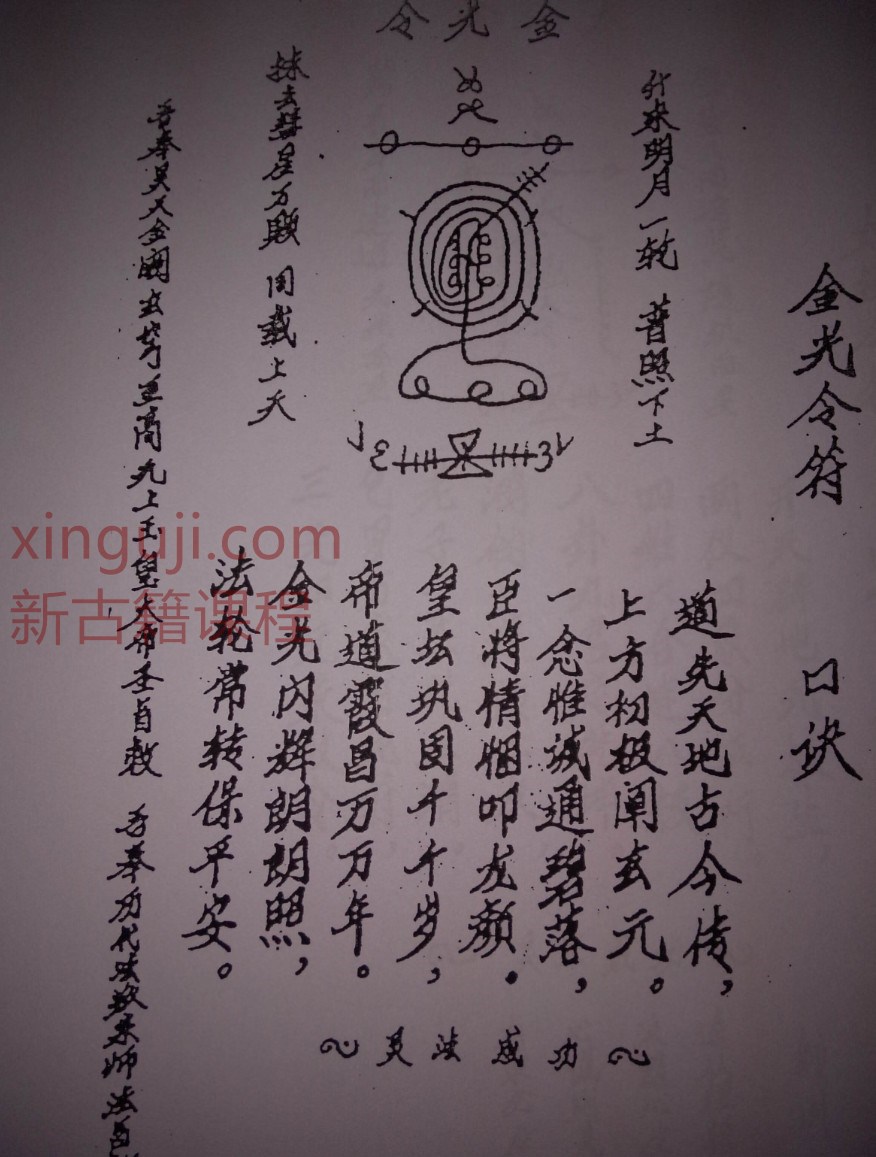 金光令
金光令符 口诀
道先天地古今传，
上方初极阐玄元。
一念惟诚通碧落，
臣将情悃叩龙颜。
皇坛巩固千千岁，
帝道霞昌万万年。
金光闪辉朗朗照，
法轮常转保平安。
灵法感功
来明月一轮 普照下土
抹去彗星万颗 同载上天
吾奉昊天金阙玄穹至高九上玉皇大帝圣旨敕 吾奉历代法教宗师法旨
xinguji.com
新古籍课程